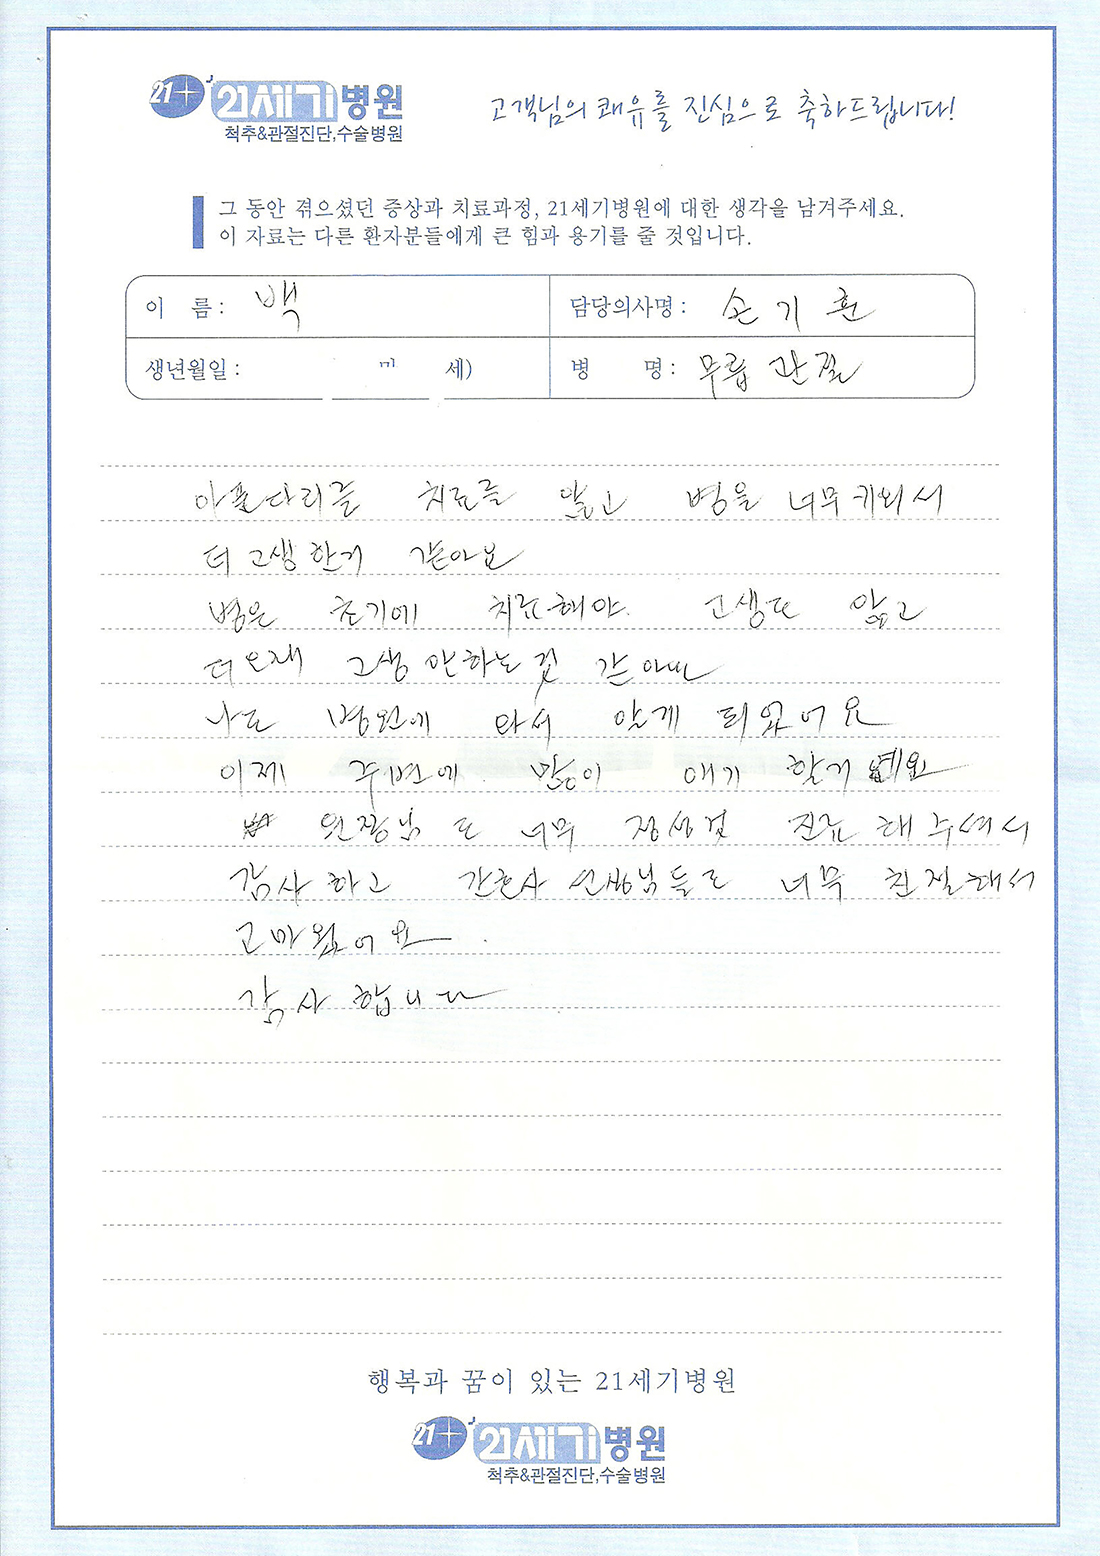 21+ 21세기병원
척추&관절진단,수술병원
고객님의 쾌유를 진심으로 축하드립니다!
그 동안 겪으셨던 증상과 치료과정, 21세기병원에 대한 생각을 남겨주세요.
이 자료는 다른 환자분들에게 큰 힘과 용기를 줄 것입니다.
이 름 : 백
담당의사명 : 손기훈
생년월일 : 세)
병 명 : 무릎 관절
아픈다리를 치료를 않고 병을 너무키워서
더 고생한거 같아요
병은 초기에 치료해야 고생도 않고
더오래 고생안하는것 같아요
나도 병원에 와서 알게 되었어요
이제 주변에 많이 얘기 할거예요
원장님도 너무 정성껏 진료해주셔서
감사하고 간호사 선생님들도 너무 친절해서
고마웠어요.
감사합니다
행복과 꿈이 있는 21세기병원
21+ 21세기병원
척추&관절진단,수술병원